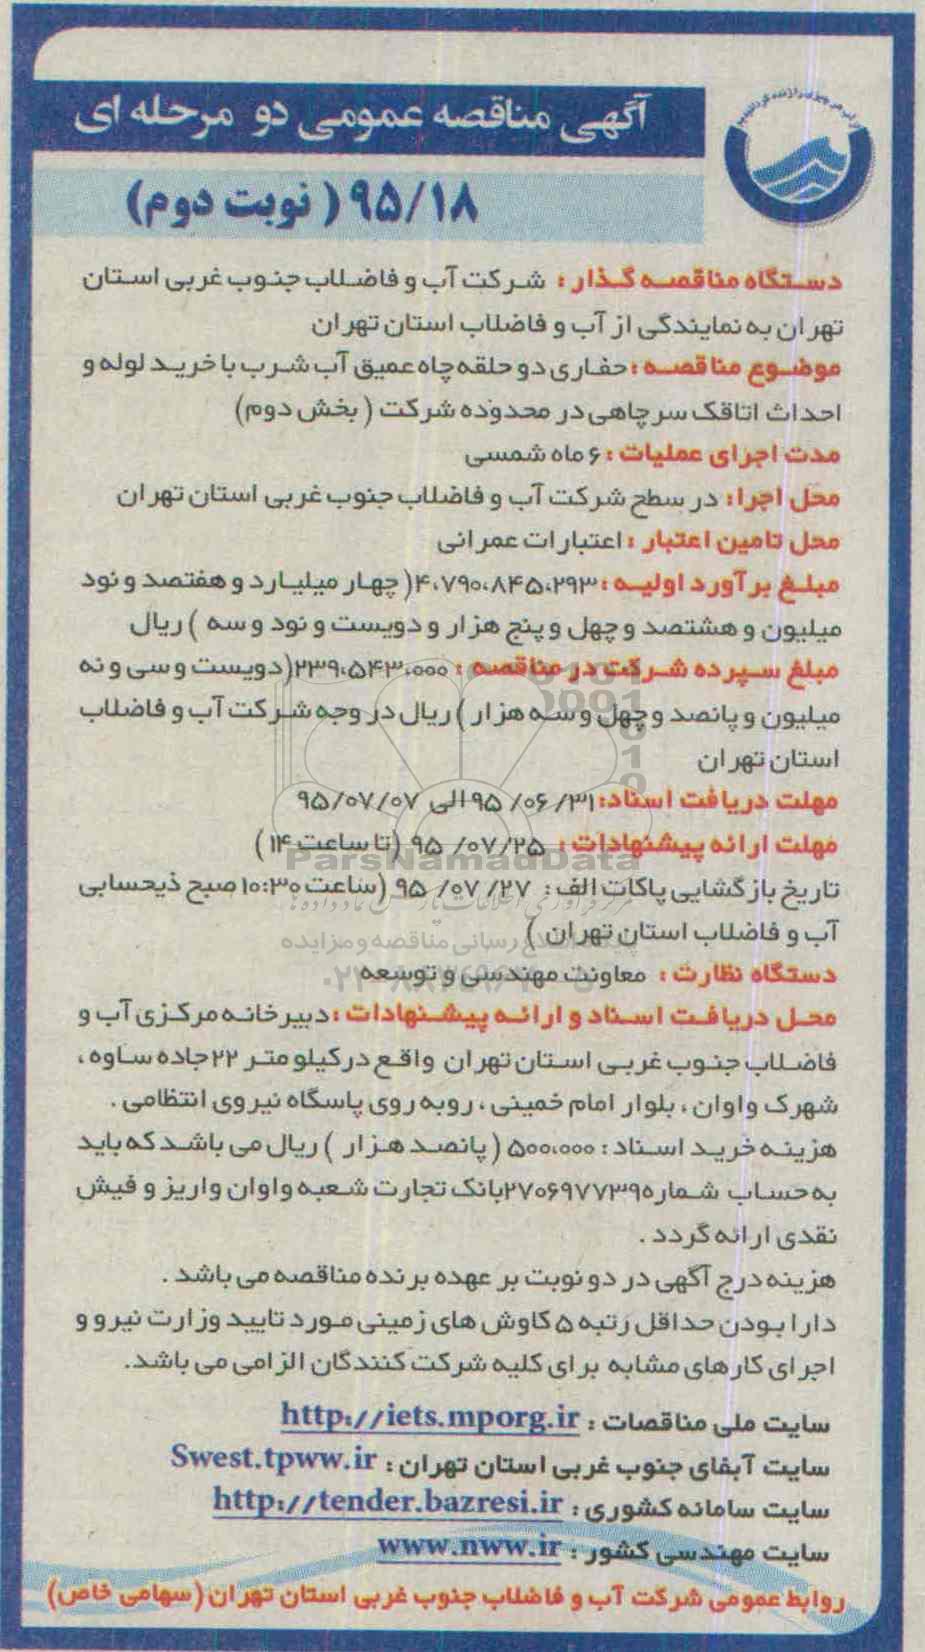 آگهی مناقصه عمومی دو مرحله ای
۹۵/۱۸ ( نوبت دوم)
دستگاه مناقصه گذار : شرکت آب و فاضلاب جنوب غربی استان
تهران به نمایندگی از آب و فاضلاب استان تهران
موضوع مناقصه : حفاری دو حلقه چاه عمیق آب شرب با خرید لوله و
احداث اتاقک سر چاهی در محدوده شرکت ( بخش دوم)
مدت اجرای عملیات : ۶ ماه شمسی
محل اجرا: در سطح شرکت آب و فاضلاب جنوب غربی استان تهران
محل تامین اعتبار : اعتبارات عمرانی
مبلغ برآورد اولیه : ۴،۷۹۰،۸۴۵،۲۹۳( چهار میلیارد و هفتصد و نود
میلیون و هشتصد و چهل و پنج هزار و دویست و نود و سه ) ریال
مبلغ سپرده شرکت در مناقصه : ۲۳۹،۵۴۳،۰۰۰(دویست و سی و نه
میلیون و پانصد و چهل و سه هزار ) ریال در وجه شرکت آب و فاضلاب
استان تهران
مهلت دریافت اسناد: ۹۵/۰۶/۳۱ الی ۹۵/۰۷/۰۷
مهلت ارائه پیشنهادات : ۹۵/۰۷/۲۵ (تا ساعت ۱۴ )
ParsNamadData
تاریخ بازگشایی پاکات الف : ۹۵/۰۷/۲۷ (ساعت ۱۰:۳۰ صبح ذیحسابی
آب و فاضلاب استان تهران )
دستگاه نظارت : معاونت مهندسی و توسعه
محل دریافت اسناد و ارائه پیشنهادات : دبیرخانه مرکزی آب و
فاضلاب جنوب غربی استان تهران واقع در کیلو متر ۲۲ جاده ساوه ،
شهرک واوان ، بلوار امام خمینی ، روبه روی پاسگاه نیروی انتظامی .
هزینه خرید اسناد : ۵۰۰،۰۰۰ ( پانصد هزار ) ریال می باشد که باید
به حساب شماره ۲۷۰۶۹۷۷۳۹ بانک تجارت شعبه واوان واریز و فیش
نقدی ارائه گردد .
هزینه درج آگهی در دو نوبت بر عهده برنده مناقصه می باشد .
دارا بودن حداقل رتبه ۵ کاوش های زمینی مورد تایید وزارت نیرو و
اجرای کارهای مشابه برای کلیه شرکت کنندگان الزامی می باشد.
سایت ملی مناقصات : http://iets.mporg.ir
سایت آبفای جنوب غربی استان تهران : Swest.tpww.ir
سایت سامانه کشوری : http://tender.bazresi.ir
سایت مهندسی کشور : www.nww.ir
روابط عمومی شرکت آب و فاضلاب جنوب غربی استان تهران (سهامی خاص)